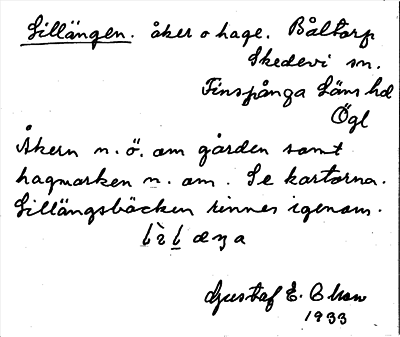 Lillängen. åker o hage. Båltorp
Skedevi sn.
Finspånga Läns hd
Ögl
Åkern n. ö. om gården samt
hagmarken n. om. Se kartorna.
Lillängsbäcken rinner igenom.
Gustaf E. Olson
1933